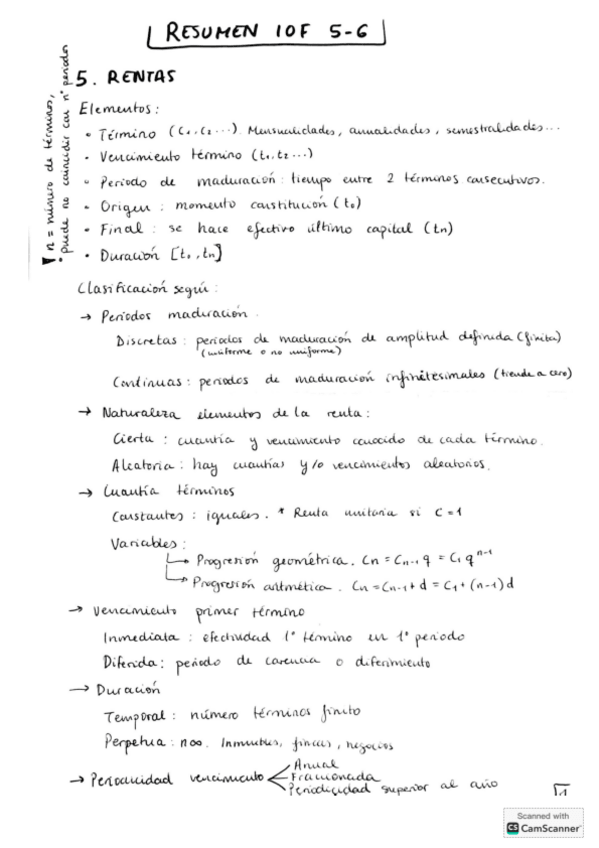 RESUMEN IOF 5-6
n = número de términos,
puede no coincidir con nº periodos
5. RENTAS
Elementos:
• Término (C1, C2 ...). Mensualidades, anualidades, semestralidades...
• Vencimiento término (t1, t2 ...)
• Periodo de maduración: tiempo entre 2 términos consecutivos.
• Origen: momento constitución (t0)
• Final: se hace efectivo último capital (tn)
• Duración [t0, tn]
Clasificación según:
→ Periodos maduración.
Discretas: periodos de maduración de amplitud definida (finita)
(uniforme o no uniforme)
Continuas: periodos de maduración infinitesimales (tiende a cero)
→ Naturaleza elementos de la renta:
Cierta: cuantía y vencimiento conocido de cada término.
Aleatoria: hay cuantías y/o vencimientos aleatorios.
→ Cuantía términos
Constantes: iguales. * Renta unitaria si C = 1
Variables:
Progresión geométrica. Cn = Cn-1 q = C1 q^n-1
Progresión aritmética. Cn = Cn-1 + d = C1 + (n-1) d
→ Vencimiento primer término
Inmediata: efectividad 1º término en 1º periodo
Diferida: periodo de carencia o diferimiento
→ Duración
Temporal: número términos finito
Perpetua: n∞. Inmuebles, fincas, negocios
→ Periodicidad vencimiento
Anual
Fraccionada
Periodicidad superior al año
1
Scanned with
CS CamScanner